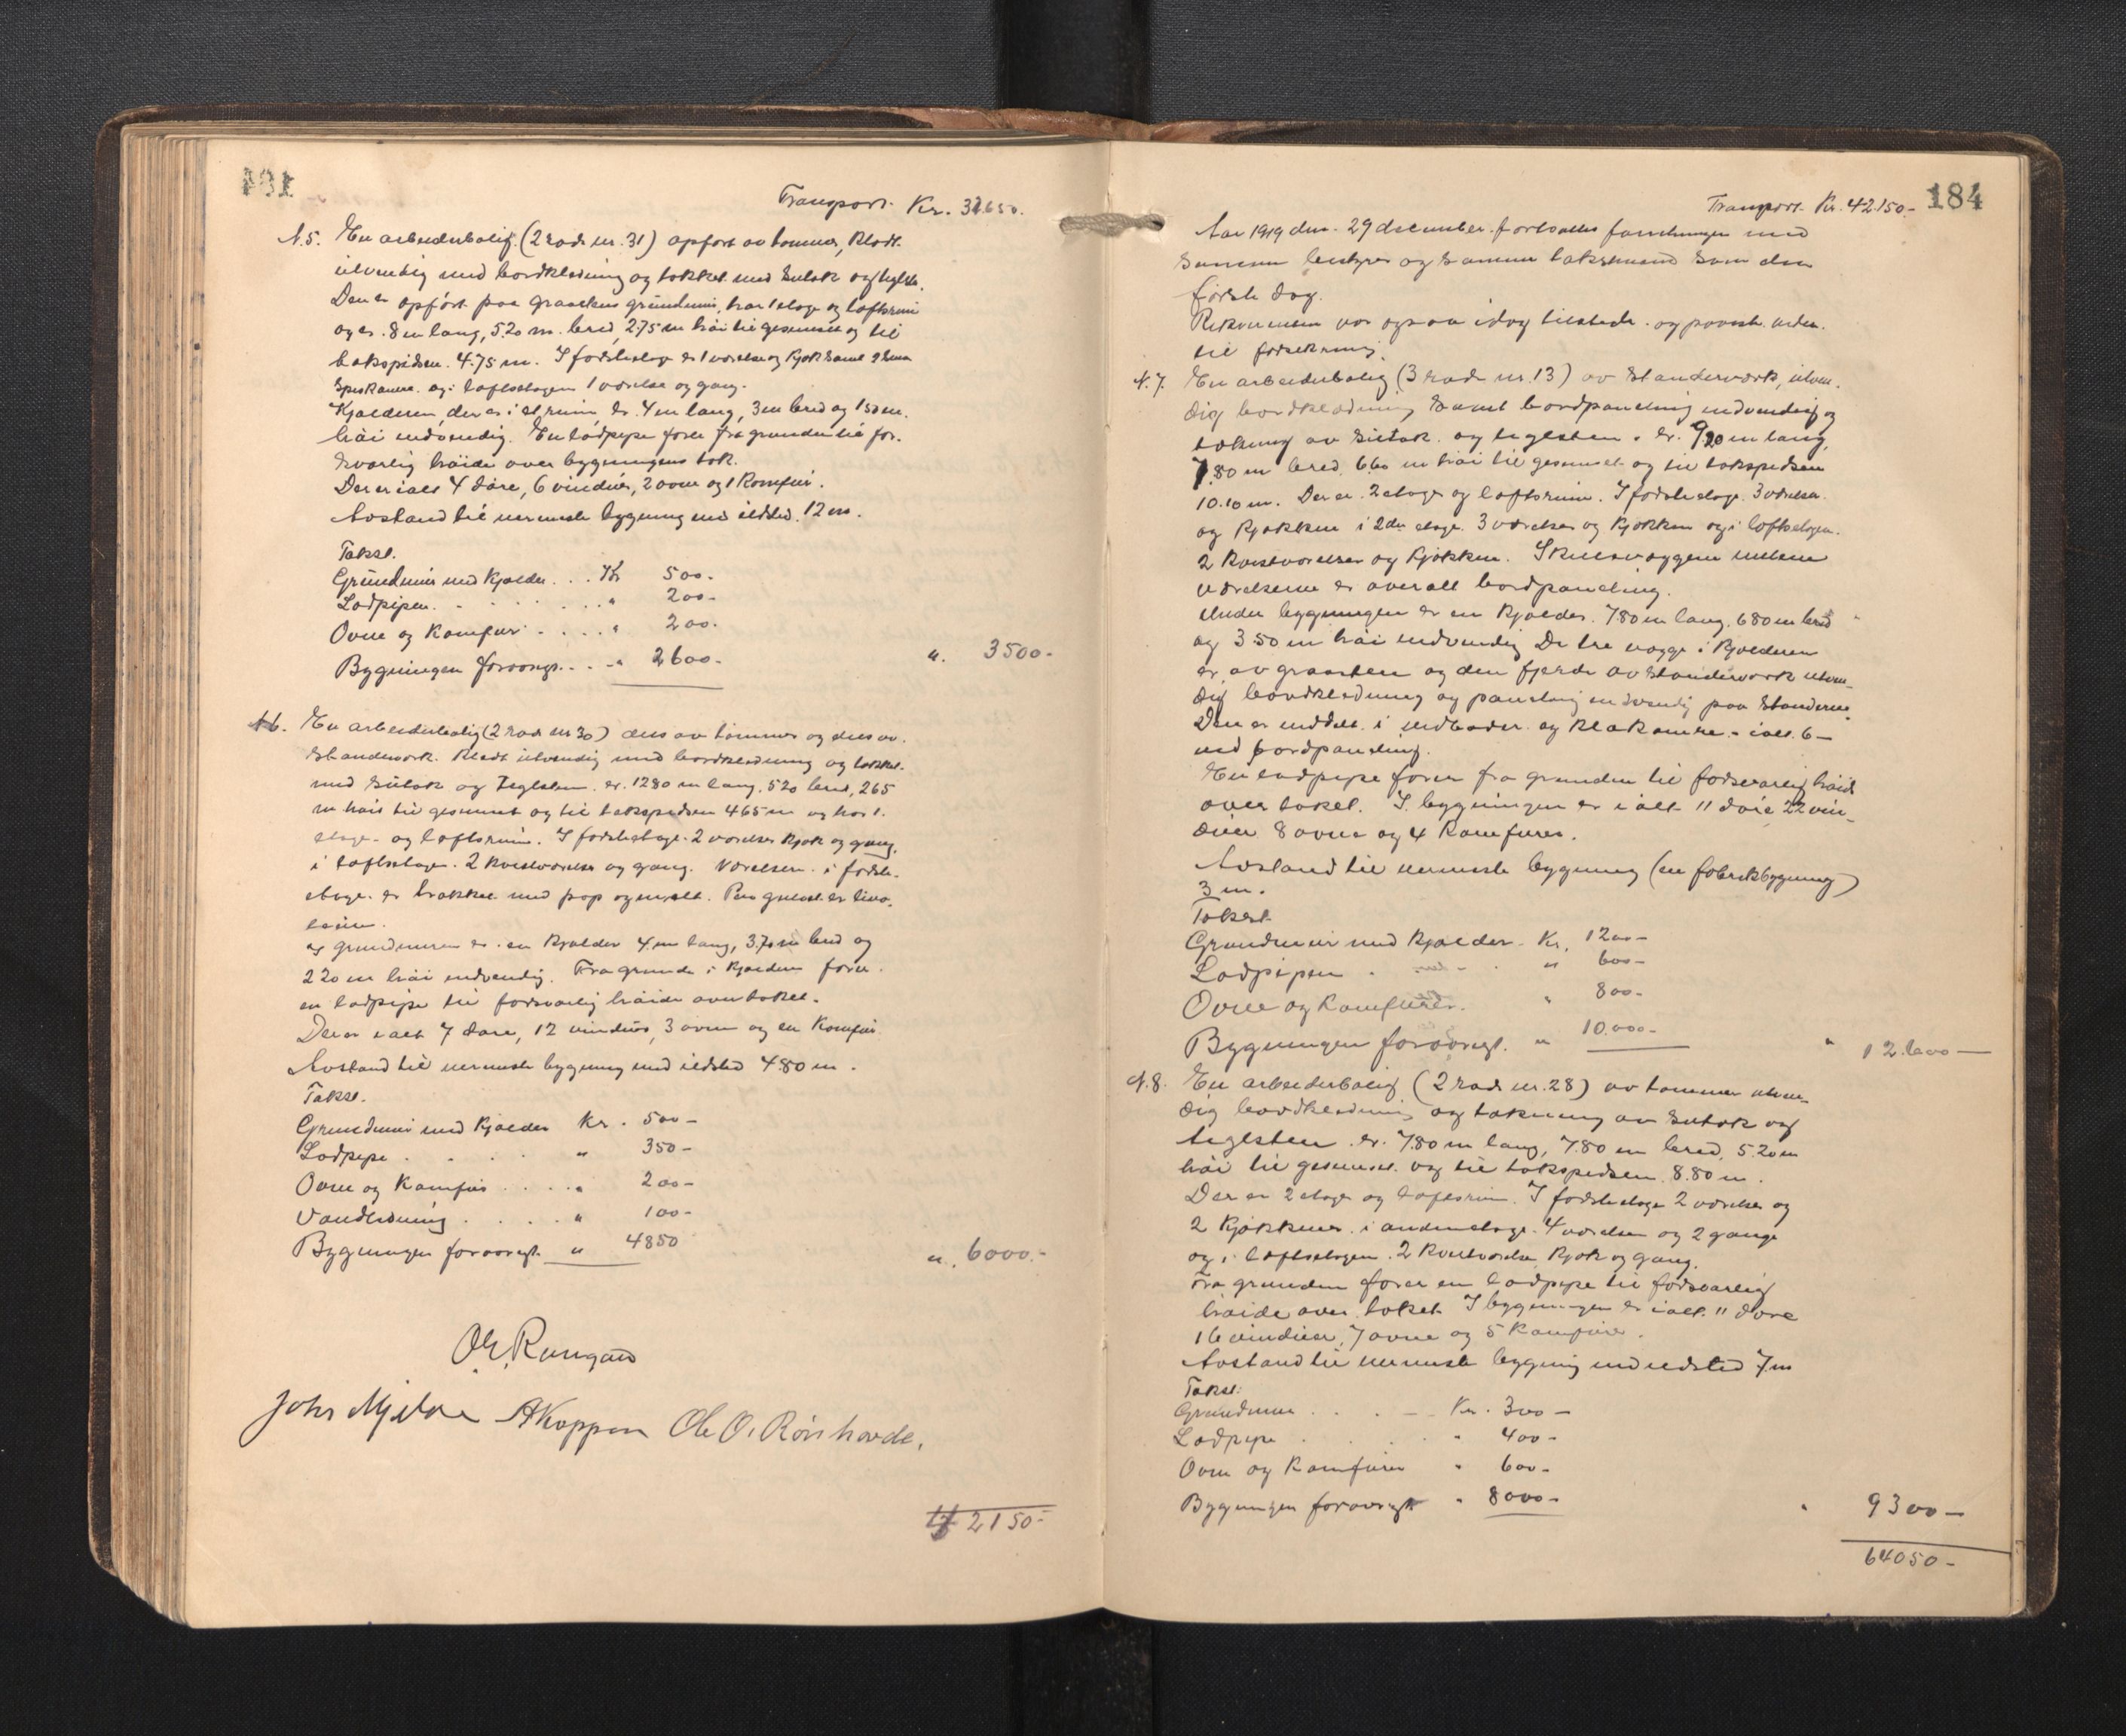 Transport. Kr. 32650.
N.5. En arbeiderbolig. (2 rad. nr. 31) opført av tømmer, klædt.
utvendig med bordklædning og tækket med sutak og teglst.
Den er opført paa graastens grundmur, har 1 etage og loftsrum
og er. 8 m lang, 5.20 m. bred, 2.75 m høi til gesimset og til
takspidsen. 4.75 m. I første etage er 1 værelse og kjøk samt 2 smaa
spiskamre. og i loftsetagen 1 værelse og gang.
Kjælderen, der er i et rum er. 4 m lang, 3 m bred og 1.50 m.
høi indvendig. En lodpipe fører fra grunden til for-
svarlig høide over bygningens tak.
Der er ialt 4 døre, 6 vinduer, 2 ovne og 1 Komfur.
Avstand til nærmeste bygning med ildsted. 12 m.
Takst.
Grundmur med Kjælder . . . Kr 500.-
Lodpipen. . . . . . . . " 200-
Ovne og Komfur . . . . " 200.-
Bygningen forøvrigt. . . . " 2600-
". 3500-
N6. En arbeiderbolig (2 rad. nr 30) dels av tømmer og dels av.
Standerværk. klædt utvendig med bordklædning og tækket.
med sutak og Teglsten. er. 12.80 m lang, 5.20 bred, 2.65
m høi til gesimset og til takspidsen 4.65 m og har 1.
etage- og loftsrum. I første etage. 2 værelser kjøk og gang,
i loftsetagen. 2 kvistværelser og gang. Værelsene. i første-
etage. er trækket med pap og malt. Paa gulvet er lino-
leum.
I grundmuren er en kjælder 4 m lang, 3.70 m bred og
2.20 m høi indvendig. Fra grunden i kjælderen fører.
en lodpipe til forsvarlig høide over taket.
Der er ialt 7 døre, 12 vinduer, 3 ovne og en Komfur.
Avstand til nærmeste bygning med ildsted 4.80 m.
Takst.
Grundmur med Kjælder Kr. 500-
Lodpipe . . . . " 350-
Ovne og Komfur . . . . " 200-
Vandledning . . . . " 100-
Bygningen forøvrigt. " 4850
". 6000.-
John Mjelde A Koppen Ole O. Rønhovde.
42150-
184
Transport. Kr. 42150.-
Aar 1919 den. 29 december. fortsattes forretningen med
samme bestyrer og samme takstmænd som den
første dag.
Rekvirenten var ogsaa idag tilstede. og paaviste. eiden.
til forsikring.
N. 7. En arbeiderbolig (3 rad. nr. 13) av Standerværk, utven-
dig bordklædning samt bordpaneling indvendig og
tækning av sutak. og teglsten. er. 9.20 m lang,
7.80 m bred, 6.60 m høi til gesimset og til takspidsen
10.10 m. Der er. 2 etager og loftsrum. I første etage. 3 værelser.
og kjøkken i 2den etage. 3 værelser og kjøkken og i loftsetagen.
2 kvistværelser og kjøkken. Skillevæggene mellem
værelserne er overalt bordpaneling.
Under bygningen er en kjælder. 7.80 m lang, 6.80 m bred
og 3.50 m høi indvendig De tre vægge i kjælderen
er av graasten og den fjerde av standerværk utven-
dig bordklædning og paneling indvendig paa Standerne.
Den er inddelt. i vedboder. og klækamre.- ialt. 6-
med bordpaneling.
En lodpipe fører fra grunden til forsvarlig høide
over taket. I bygningen er ialt 11 døre 22 vin-
duer 8 ovne og 4 Komfurer.
Avstand til nærmeste bygning (en fabrikbygning)
3 m.
Takst.
Grundmur med Kjælder. Kr. 1200-
Lodpipen . . . " 600-
Ovne og Komfurer. " 800-
Bygningen forøvrigt. " 10.000-
" 12.600-
N.8. En arbeiderbolig (2 rad. nr. 28) av tømmer utven-
dig bordklædning og tækning av sutak og
teglsten. er. 7.80 m lang, 7.80 m bred, 5.20 m
høi til gesimset. og til takspidsen 8.80 m.
Der er 2 etager og loftsrum. I første etage 2 værelser og
2 kjøkkener. i anden etage. 4 værelser og 2 gange
og i loftsetagen. 2 kvistværelser, kjøk og gang.
Fra grunden fører en lodpipe til forsvarlig
høide over taket. I bygningen er ialt. 11 døre
16 vinduer, 7 ovne og 5 Komfurer.
Avstand til nærmeste bygning med ildsted 7 m
Takst.
Grundmur . . . Kr. 300-
Lodpipe . . . " 400-
Ovne og Komfurer " 600-
Bygningen forøvrigt " 8000-
" 9300-
64050-